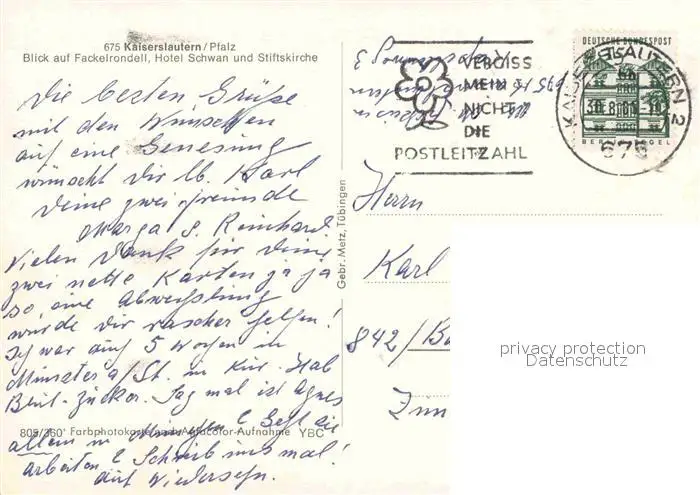 675 Kaiserslautern/Pfalz
Blick auf Fackelrondell, Hotel Schwan und Stiftskirche
Die besten Grüße
mit den Wünschen
auf eine Genesung
wünscht Dir lb. Karl
Deine zwei Freunde
Marga u. Reinhard.
Vielen Dank für Deine
zwei nette Karten ja ja
so eine Abwechslung
würde Dir rascher helfen!
Ich war auf 5 Wochen in
Münster a/St. in Kur. Hab
Blut-Zucker. Sag mal ist Agnes
allein in
arbeiten & Schreib uns mal!
auf Wiedersehn.
805/360 Farbphotokarte nach Agfacolor-Aufnahme YBC
Gebr. Metz, Tübingen
VERGISS
MEIN
NICHT
DIE
POSTLEITZAHL
DEUTSCHE BUNDESPOST
30 30
KAISERSLAUTERN 2
675
Herrn
Karl
842/
privacy protection
Datenschutz